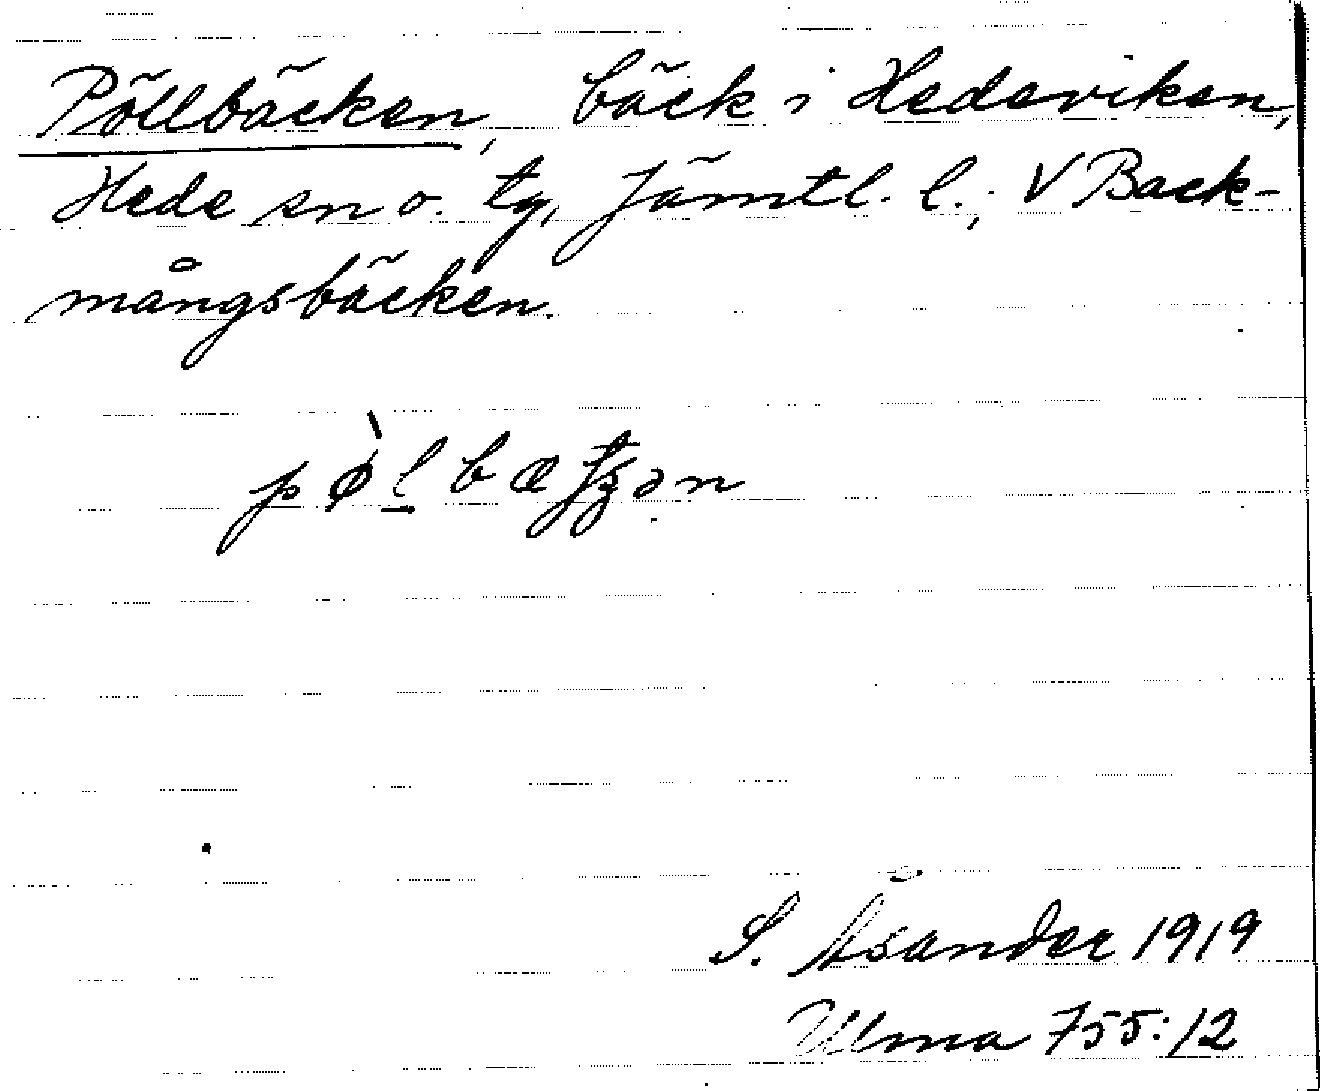 Pöllbäcken, bäck i Hedeviken,
Hede sn o. tg, Jämtl. l.; V Back-
mångsbäcken.
pø̀lbæʈʂən
S. Åsander 1919
Ulma 755:12